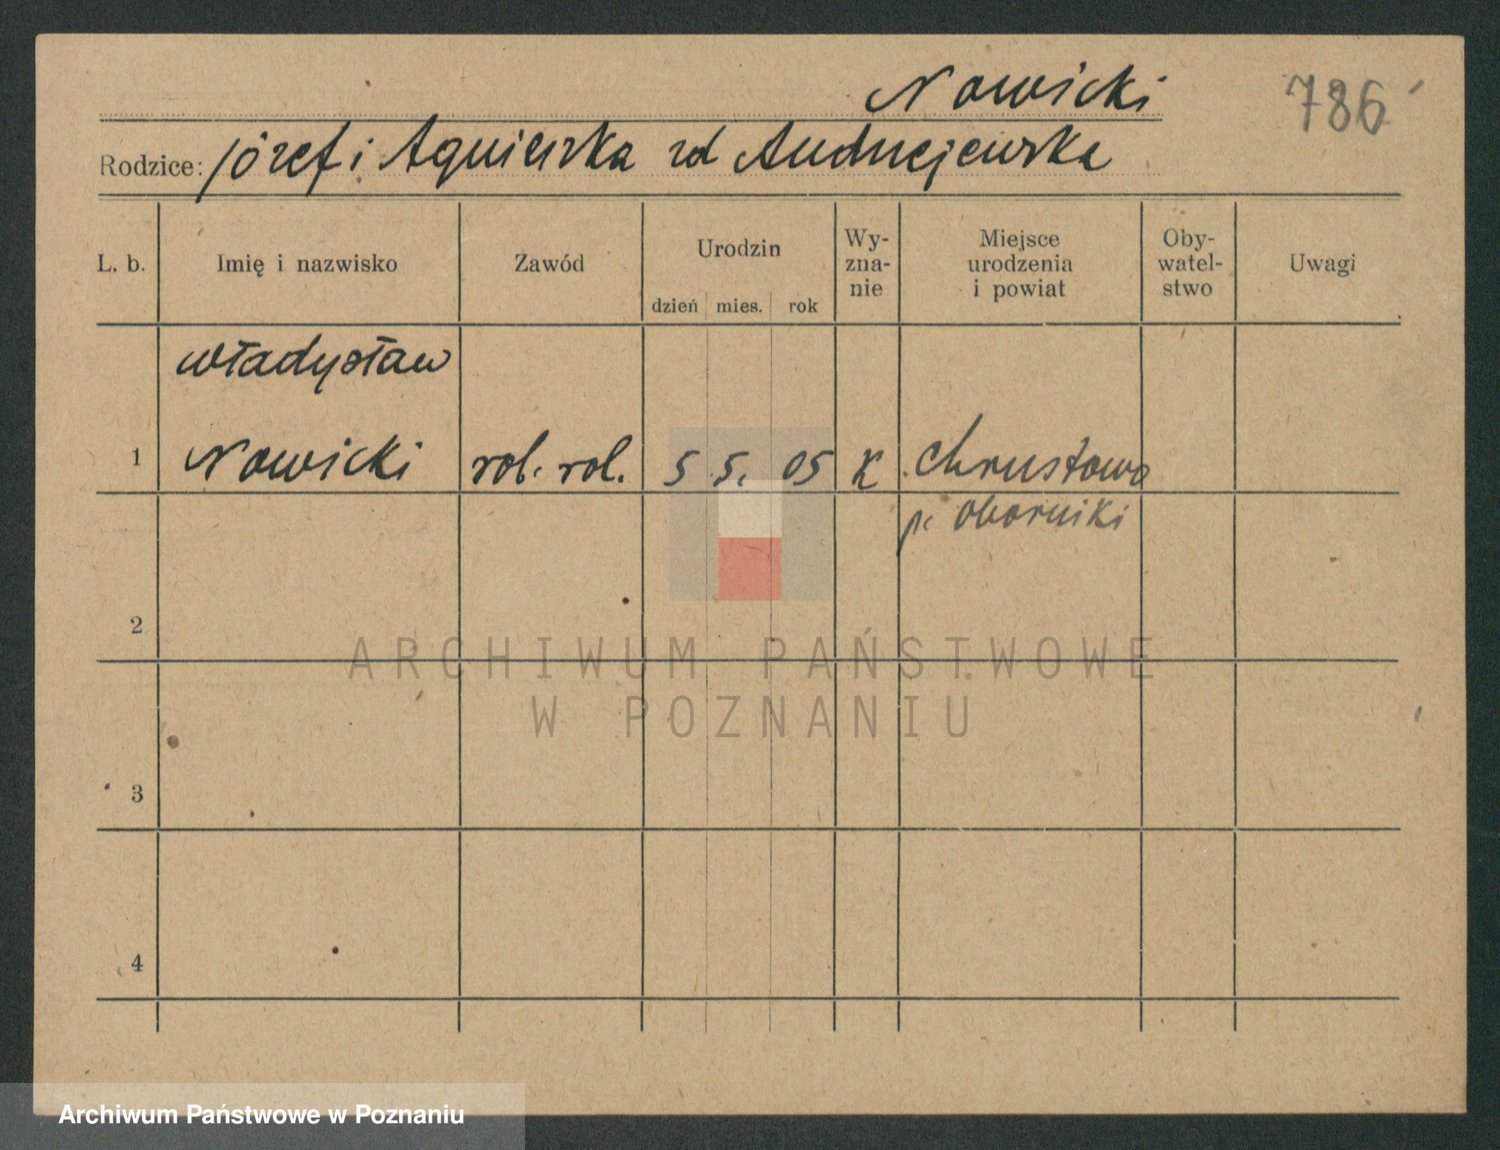 Nowicki
786
Rodzice: Józef i Agnieszka zd Andrzejewska
L. b.
Imię i nazwisko
Zawód
Urodzin
dzień mies. rok
Wy-
zna-
nie
Miejsce
urodzenia
i powiat
Oby-
watel-
stwo
Uwagi
Władysław
1 Nowicki rol. rol. 5 5. 05 K Chrustowo
p. Oborniki
2
ARCHIWUM PAŃSTWOWE
W POZNANIU
3
4
Archiwum Państwowe w Poznaniu